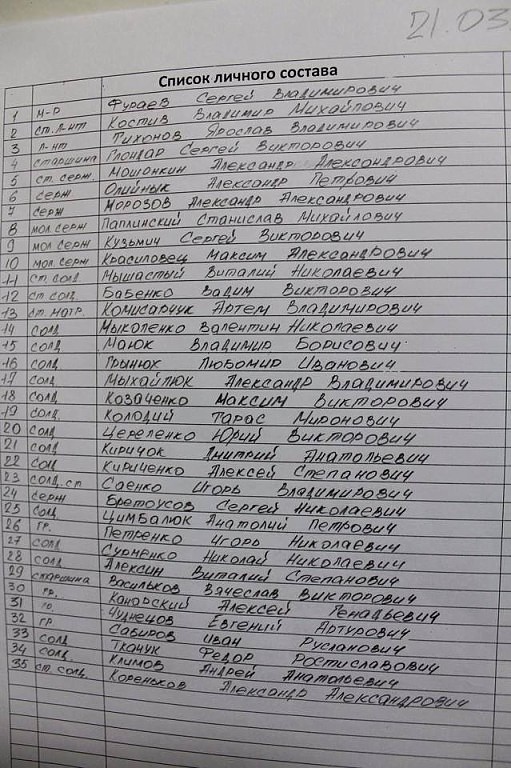 21.03
Список личного состава
1 м-р Фураев Сергей Владимирович
2 ст. л-нт Костив Владимир Михайлович
3 л-нт Тихонов Ярослав Владимирович
4 старшина Глондар Сергей Викторович
5 ст. серж. Мошонкин Александр Александрович
6 серж Олийнык Александр Петрович
7 серж Морозов Александр Александрович
8 мол. серж Паплинский Станислав Михайлович
9 мол. серж Кузьмич Сергей Викторович
10 мол. серж Красиловец Максим Александрович
11 ст. солд Мышастый Виталий Николаевич
12 ст. солд Бабенко Вадим Викторович
13 ст. матр. Комисарчук Артем Владимирович
14 солд Мыколенко Валентин Николаевич
15 солд Маюк Владимир Борисович
16 солд Грынюх Любомир Иванович
17 солд Мыхайлюк Александр Владимирович
18 солд Козаченко Максим Викторович
19 солд Колодий Тарас Миронович
20 солд Цереленко Юрий Викторович
21 солд Киричок Дмитрий Анатольевич
22 солд Кириченко Алексей Степанович
23 солд. сп Саенко Игорь Владимирович
24 серж Бретоусов Сергей Николаевич
25 солд Цимбалюк Анатолий Петрович
26 гр. Петренко Игорь Николаевич
27 солд Сурменко Николай Николаевич
28 солд Алексин Виталий Степанович
29 старшина Васильков Вячеслав Викторович
30 гр. Канорский Алексей Генадьевич
31 гр. Чуднецов Евгений Артурович
32 гр Сабиров Иван Русланович
33 солд Ткачук Федор Ростиславович
34 солд. Климов Андрей Анатольевич
35 ст. солд. Кореньков Александр Александрович